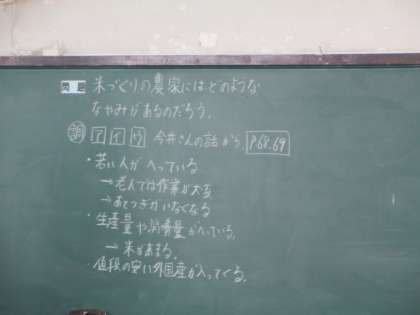 問題 米づくりの農家にはどのような
なやみがあるのだろう。
調 ア イ ウ 今井さんの話から P68.69
・若い人がへっている
→老人では作業が大変
→あとつぎがいなくなる
・生産量や消費量がへっている。
→米があまる。
・値段の安い外国産が入ってくる。